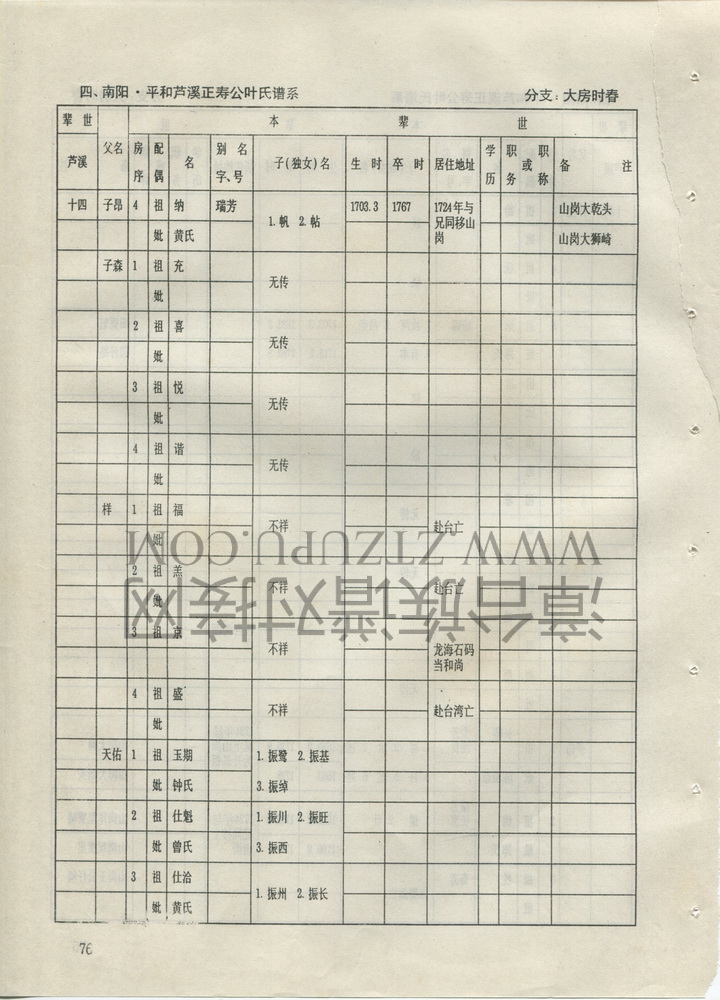 四、南阳·平和芦溪正寿公叶氏谱系 分支：大房时春
辈世 本 辈 世
芦溪 父名 房序 配偶 名 别名字、号 子(独女)名 生时 卒时 居住地址 学历 职务或职称 备注
十四 子昂 4 祖 纳 瑞芳 1.帆 2.帖 1703.3 1767 1724年与兄同移山岗 山岗大乾头
妣 黄氏 山岗大狮崎
子森 1 祖 充 无传
妣
2 祖 喜 无传
妣
3 祖 悦 无传
妣
4 祖 谐 无传
妣
样 1 祖 福 不祥 赴台亡
妣
2 祖 羔 不祥 赴台亡
妣
3 祖 京 不祥 龙海石码当和尚
4 祖 盛 不祥 赴台湾亡
妣
天佑 1 祖 玉期 1.振鹭 2.振基
妣 钟氏 3.振绰
2 祖 仕魁 1.振川 2.振旺
妣 曾氏 3.振西
3 祖 仕治 1.振州 2.振长
妣 黄氏
76
漳台族谱对接网
WWW.ZTZUPU.COM